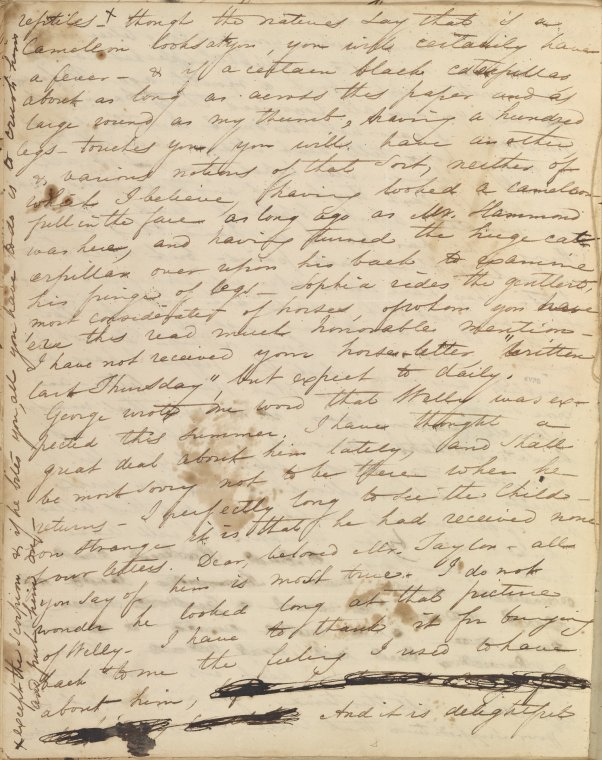 reptiles + though the natives say that if a
Cameleon looks at you, you will certainly have
a fever - & if a certain black caterpillar
about as long as across this paper and as
large round as my thumb, having a hundred
legs - touches you you will have another
& various notions of that sort, neither of
which I believe, having looked a cameleon
full in the face as long ago as Mr. Hammond
was here, and having turned the huge cat
erpillar over upon his back to examine
his fringe of legs - Sophia rides the gentlest
most considerate of horses, of whom you have
ere this read much honorable mention
I have not received your horse-letter "written
last Thursday", but expect to daily.
George wrote me word that Welly was ex-
pected this summer. I have thought a
great deal about him lately, and shall
be most sorry not to be there when he
returns - I perfectly long to see the Childe -
strange it is that he had received none
our letters. Dear, beloved Mr. Taylor - all
you say of him is most true. I do not
wonder he looked long at that picture
of Welly - I have to thank it for bringing
back to me the feeling I used to have
about him,
And it is delightful
+ except the scorpion & if he bites you, all you have to do is to crush him
and rub him on